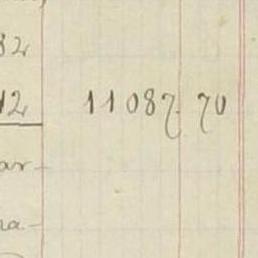 32
12 11087 70
ar-
na-